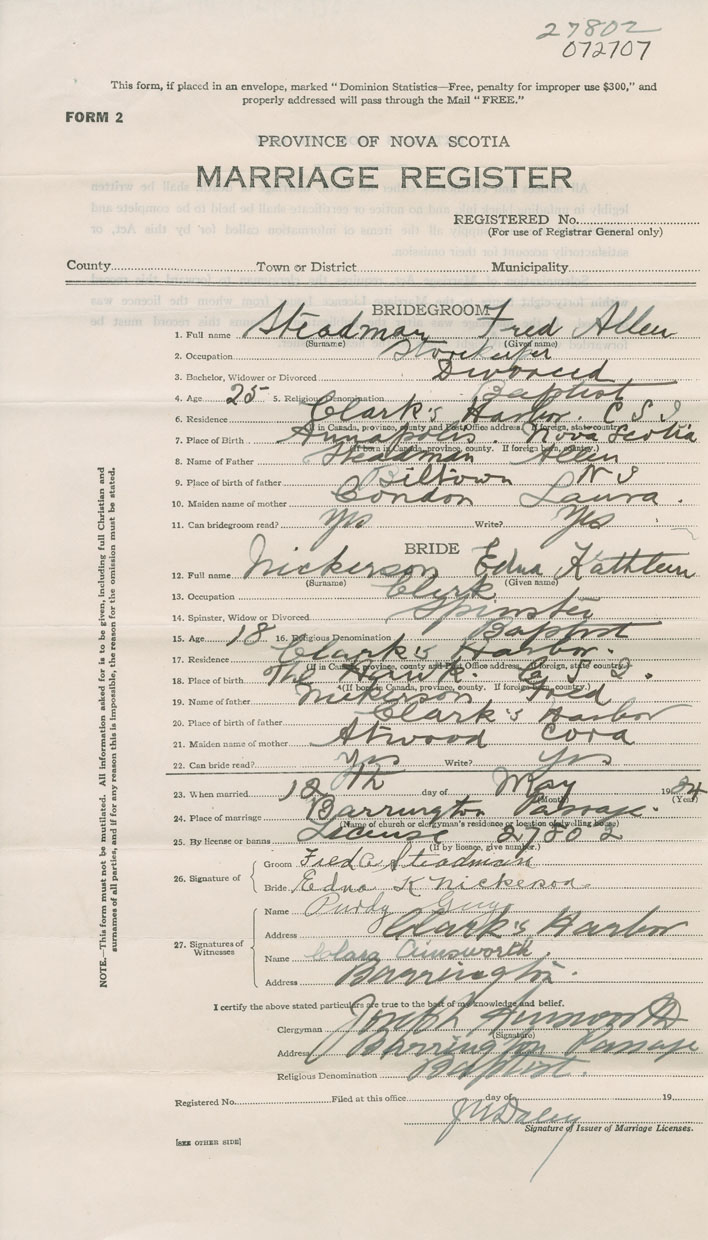 27802
072707
This form, if placed in an envelope, marked "Dominion Statistics—Free, penalty for improper use $300," and
properly addressed will pass through the Mail "FREE."
FORM 2
PROVINCE OF NOVA SCOTIA
MARRIAGE REGISTER
REGISTERED No.
(For use of Registrar General only)
County Town or District Municipality
BRIDEGROOM
1. Full name Steadman Fred Allen
(Surname) (Given name)
2. Occupation Storekeeper
3. Bachelor, Widower or Divorced Divorced
4. Age 25 5. Religious Denomination Baptist
6. Residence Clark's Harbor. C S I
(If in Canada, province, county and Post Office address. If foreign, state country.)
7. Place of Birth Annapolis. Nova Scotia
(If born in Canada, province, county. If foreign born, country.)
8. Name of Father Steadman Allen
9. Place of birth of father Biltown N S
10. Maiden name of mother Condon Laura.
11. Can bridegroom read? Yes Write? Yes
BRIDE
12. Full name Nickerson Edna Kathleen
(Surname) (Given name)
13. Occupation Clerk
14. Spinster, Widow or Divorced Spinster
15. Age 18 16. Religious Denomination Baptist
17. Residence Clark's Harbor.
(If in Canada, province, county and Post Office address. If foreign, state country.)
18. Place of birth The Hawk. C S I.
(If born in Canada, province, county. If foreign born, country.)
19. Name of father Nickerson Fred
20. Place of birth of father Clark's Harbor
21. Maiden name of mother Atwood Cora
22. Can bride read? Yes Write? Yes
23. When married 12th day of May 1934
(Month) (Year)
24. Place of marriage Barrington Passage.
(Name of church or clergyman's residence or location of dwelling house)
25. By license or banns License 27802
(If by licence, give number.)
26. Signature of Groom Fred A Steadman
Bride Edna K Nickerson
27. Signatures of Witnesses
Name Purdy
Address Clark's Harbor
Name Clara Ainsworth
Address Barrington.
I certify the above stated particulars are true to the best of my knowledge and belief.
Clergyman Joseph Ainsworth
(Signature)
Address Barrington Passage
Religious Denomination Baptist.
Registered No. Filed at this office day of 19
Signature of Issuer of Marriage Licenses.
[SEE OTHER SIDE]
NOTE.—This form must not be mutilated. All information asked for is to be given, including full Christian and
surnames of all parties, and if for any reason this is impossible, the reason for the omission must be stated.